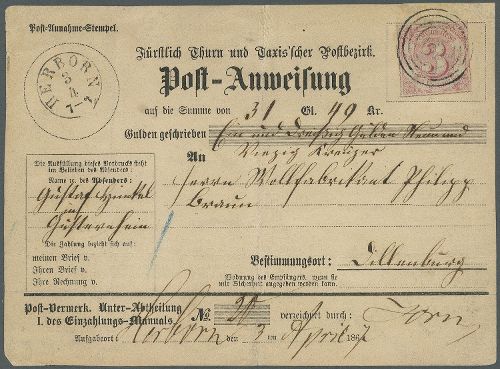 Post-Annahme-Stempel.
HERBORN
3
4
7-
3
Fürstlich Thurn und Taxis'scher Postbezirk.
Post-Anweisung
auf die Summe von 31 Gl. 49 Kr.
Gulden geschrieben Ein und Dreißig Gulden Neun und
Vierzig Kreuzer
An
Herrn Wollfabrikant Philipp
Braun
Die Ausfüllung dieses Vordrucks steht
im Belieben des Absenders:
Name 2c. des Absenders:
Gustaf
Die Zahlung bezieht sich auf:
meinen Brief v.
Ihren Brief v.
Ihre Rechnung v.
Bestimmungsort: Dillenburg
Wohnung des Empfängers, wenn sie
mit Sicherheit angegeben werden kann.
Post-Vermerk. Unter-Abtheilung
I. des Einzahlungs-Manuals № verzeichnet durch:
Aufgabeort: Herborn den 3 April 1867